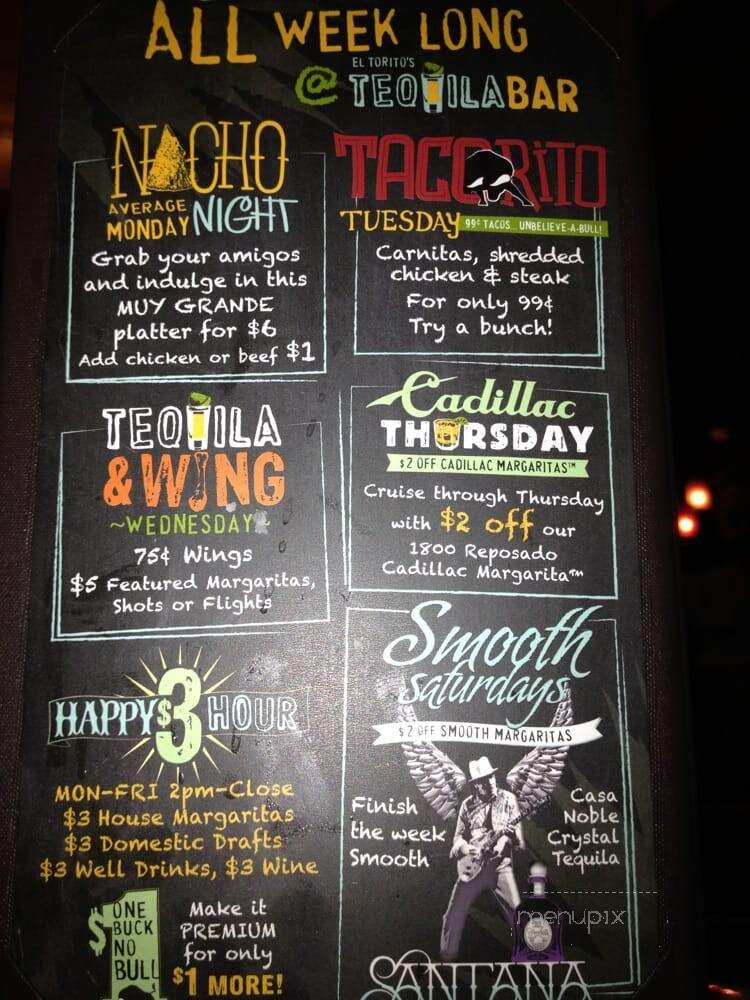 ALL WEEK LONG
EL TORITO'S
@ TEQUILA BAR
NACHO
AVERAGE
MONDAY NIGHT
Grab your amigos
and indulge in this
MUY GRANDE
platter for $6
Add chicken or beef $1
TACORITO
TUESDAY 99¢ TACOS... UNBELIEVE-A-BULL!
Carnitas, shredded
chicken & steak
For only 99¢
Try a bunch!
TEQUILA
& WING
~WEDNESDAY~
75¢ Wings
$5 Featured Margaritas,
Shots or Flights
Cadillac
THURSDAY
$2 OFF CADILLAC MARGARITAS™
Cruise through Thursday
with $2 off our
1800 Reposado
Cadillac Margarita™
HAPPY $3 HOUR
MON-FRI 2pm-Close
$3 House Margaritas
$3 Domestic Drafts
$3 Well Drinks, $3 Wine
$1 ONE
BUCK
NO
BULL
Make it
PREMIUM
for only
$1 MORE!
Smooth
Saturdays
$2 OFF SMOOTH MARGARITAS
Finish
the week
Smooth
Casa
Noble
Crystal
Tequila
SANTANA
menupix